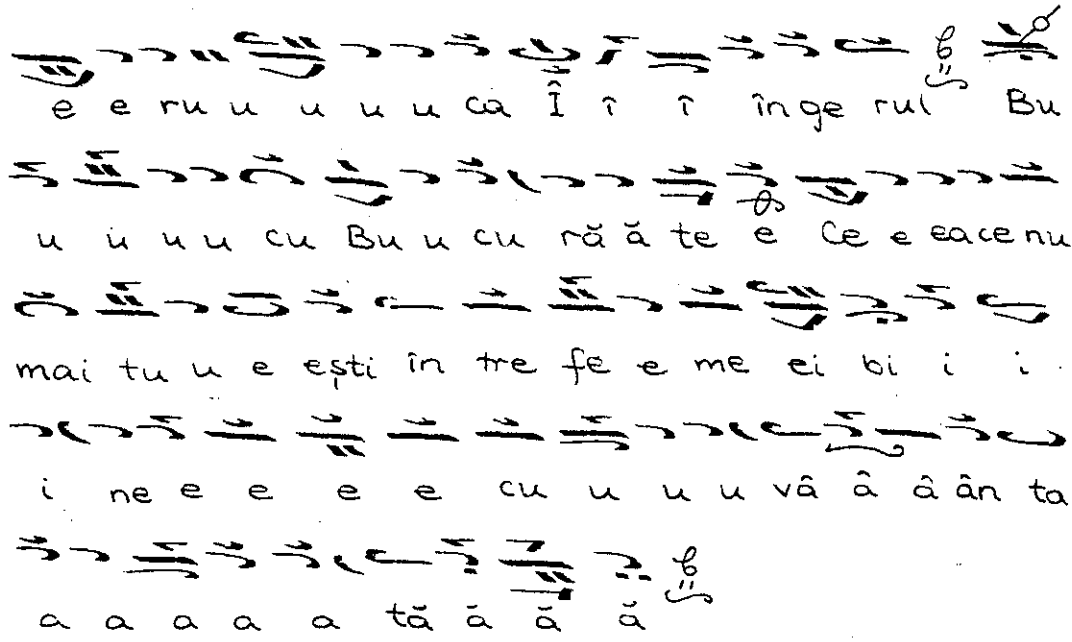 e e ru u u u u ca Î î î înge rul Bu
u u u u cu Bu u cu ră ă te e Ce e eace nu
mai tu u e ești în tre fe e me ei bi i i
i ne e e e e cu u u u vâ â â ân ta
a a a a a tă ă ă ă